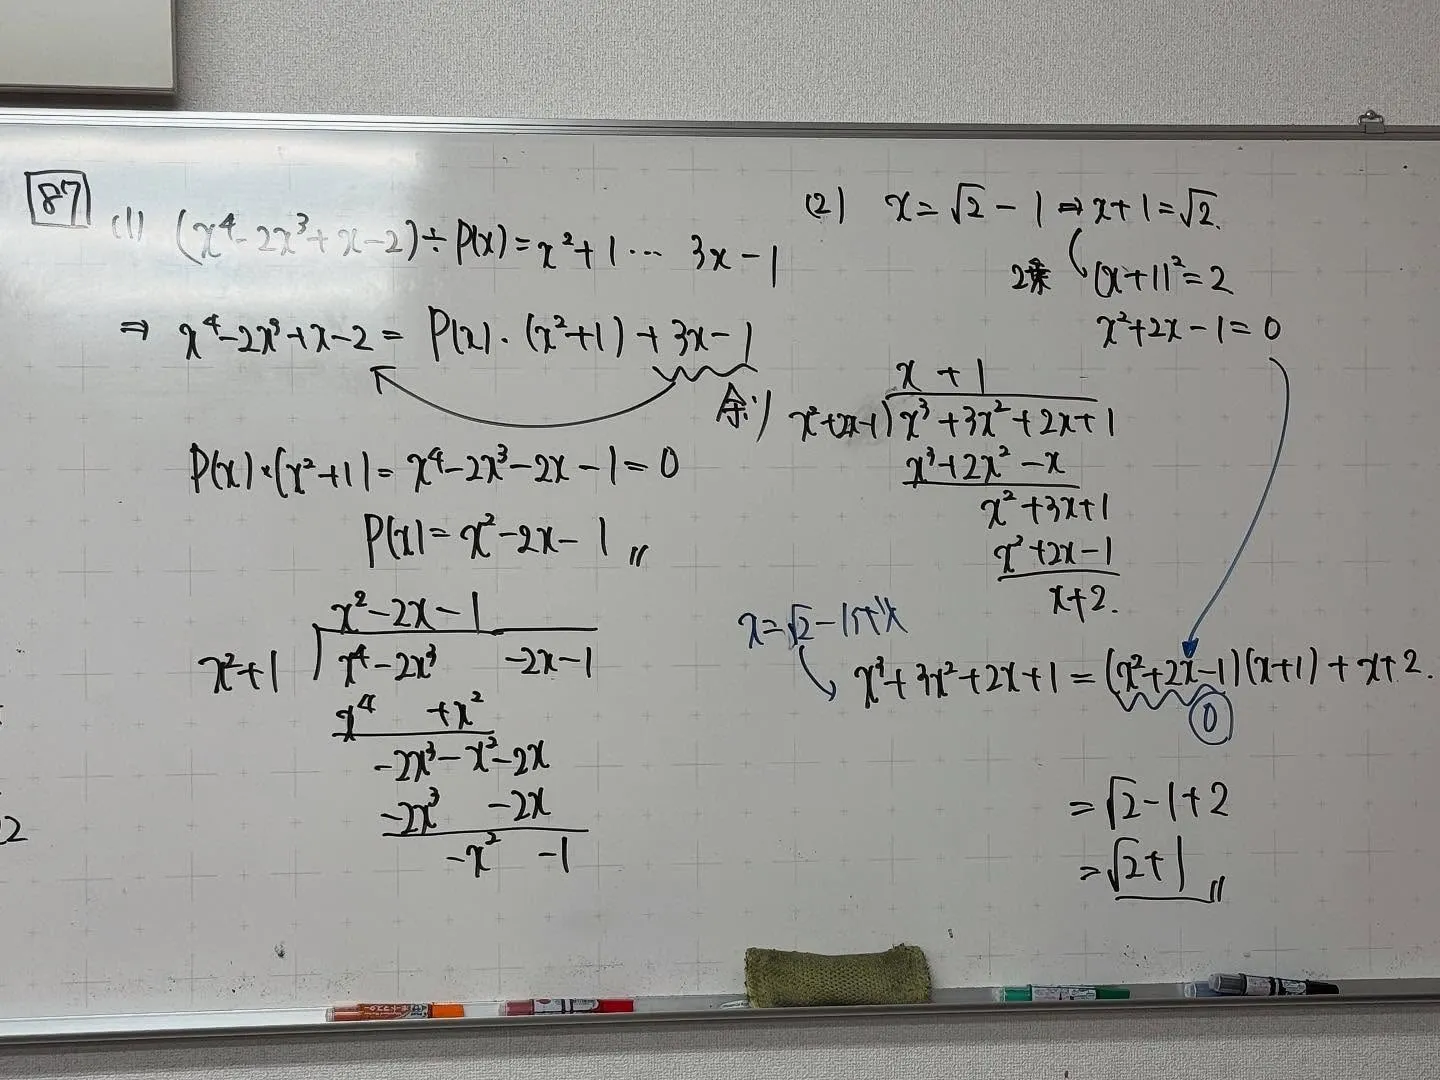 87
(1) (x⁴-2x³+x-2)÷P(x)=x²+1 ⋯ 3x-1
⇒ x⁴-2x³+x-2= P(x)・(x²+1)+3x-1
余り
P(x)×(x²+1)= x⁴-2x³-2x-1=0
P(x)=x²-2x-1〃
x²-2x-1
x²+1 ) x⁴-2x³ -2x-1
x⁴ +x²
-2x³-x²-2x
-2x³ -2x
-x² -1
(2) x=√2-1⇒x+1=√2
2乗 (x+1)²=2
x²+2x-1=0
x+1
x²+2x-1 ) x³+3x²+2x+1
x³+2x²-x
x²+3x+1
x²+2x-1
x+2.
x=√2-1代入
x³+3x²+2x+1=(x²+2x-1)(x+1)+x+2.
0
=√2-1+2
=√2+1〃
2